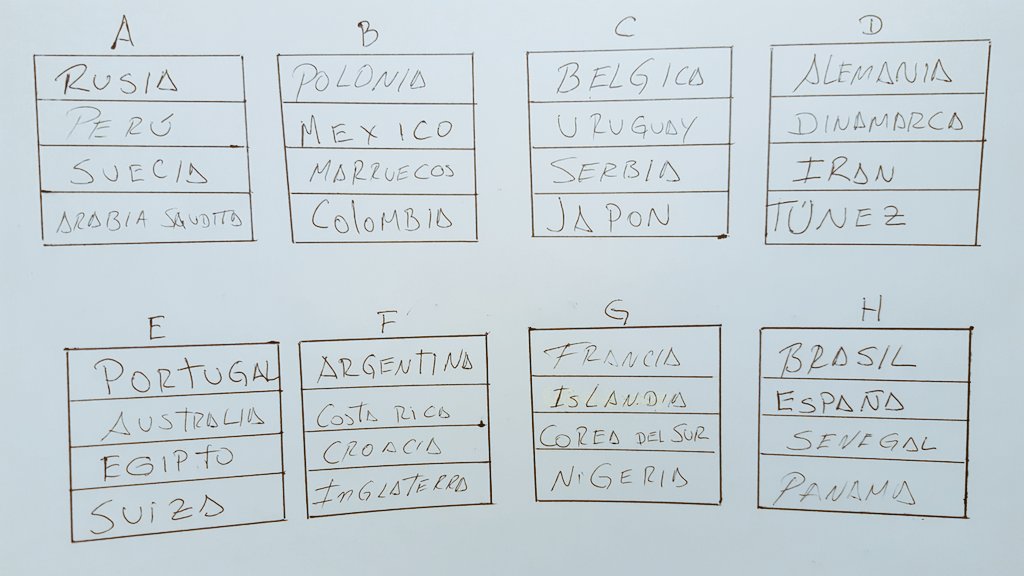 A
RUSIA
PERÚ
SUECIA
ARABIA SAUDITA
B
POLONIA
MEXICO
MARRUECOS
COLOMBIA
C
BELGICA
URUGUAY
SERBIA
JAPON
D
ALEMANIA
DINAMARCA
IRAN
TÚNEZ
E
PORTUGAL
AUSTRALIA
EGIPTO
SUIZA
F
ARGENTINA
COSTA RICA
CROACIA
INGLATERRA
G
FRANCIA
ISLANDIA
COREA DEL SUR
NIGERIA
H
BRASIL
ESPAÑA
SENEGAL
PANAMA